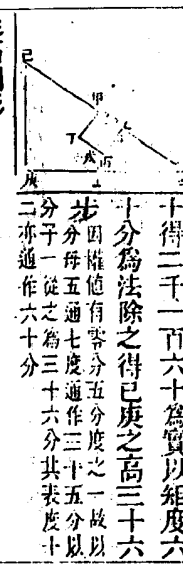 己
甲
乙
丁
戊
丙
庚
十得二千一百六十為實以矩度六
十分為法除之得己庚之高三十六
步
因權値有零分五分度之一故以
分母五通七度通作三十五分以
分子一從之為三十六分其表度十
二亦通作六十分